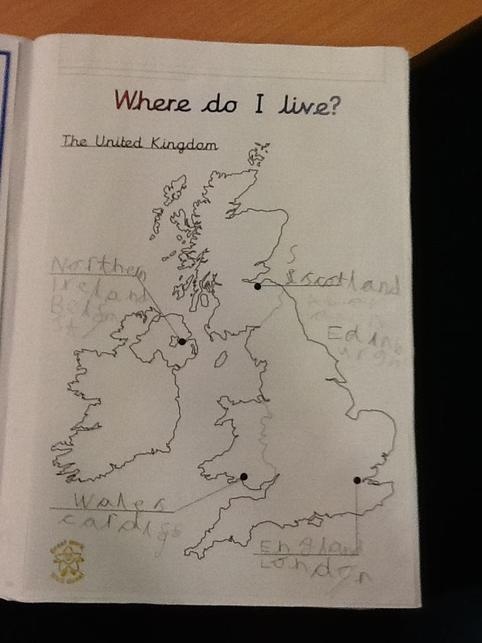 Where do I live?
The United Kingdom
Northen
Ireland
S
scotland
Edinb
urgh
Wales
England
London